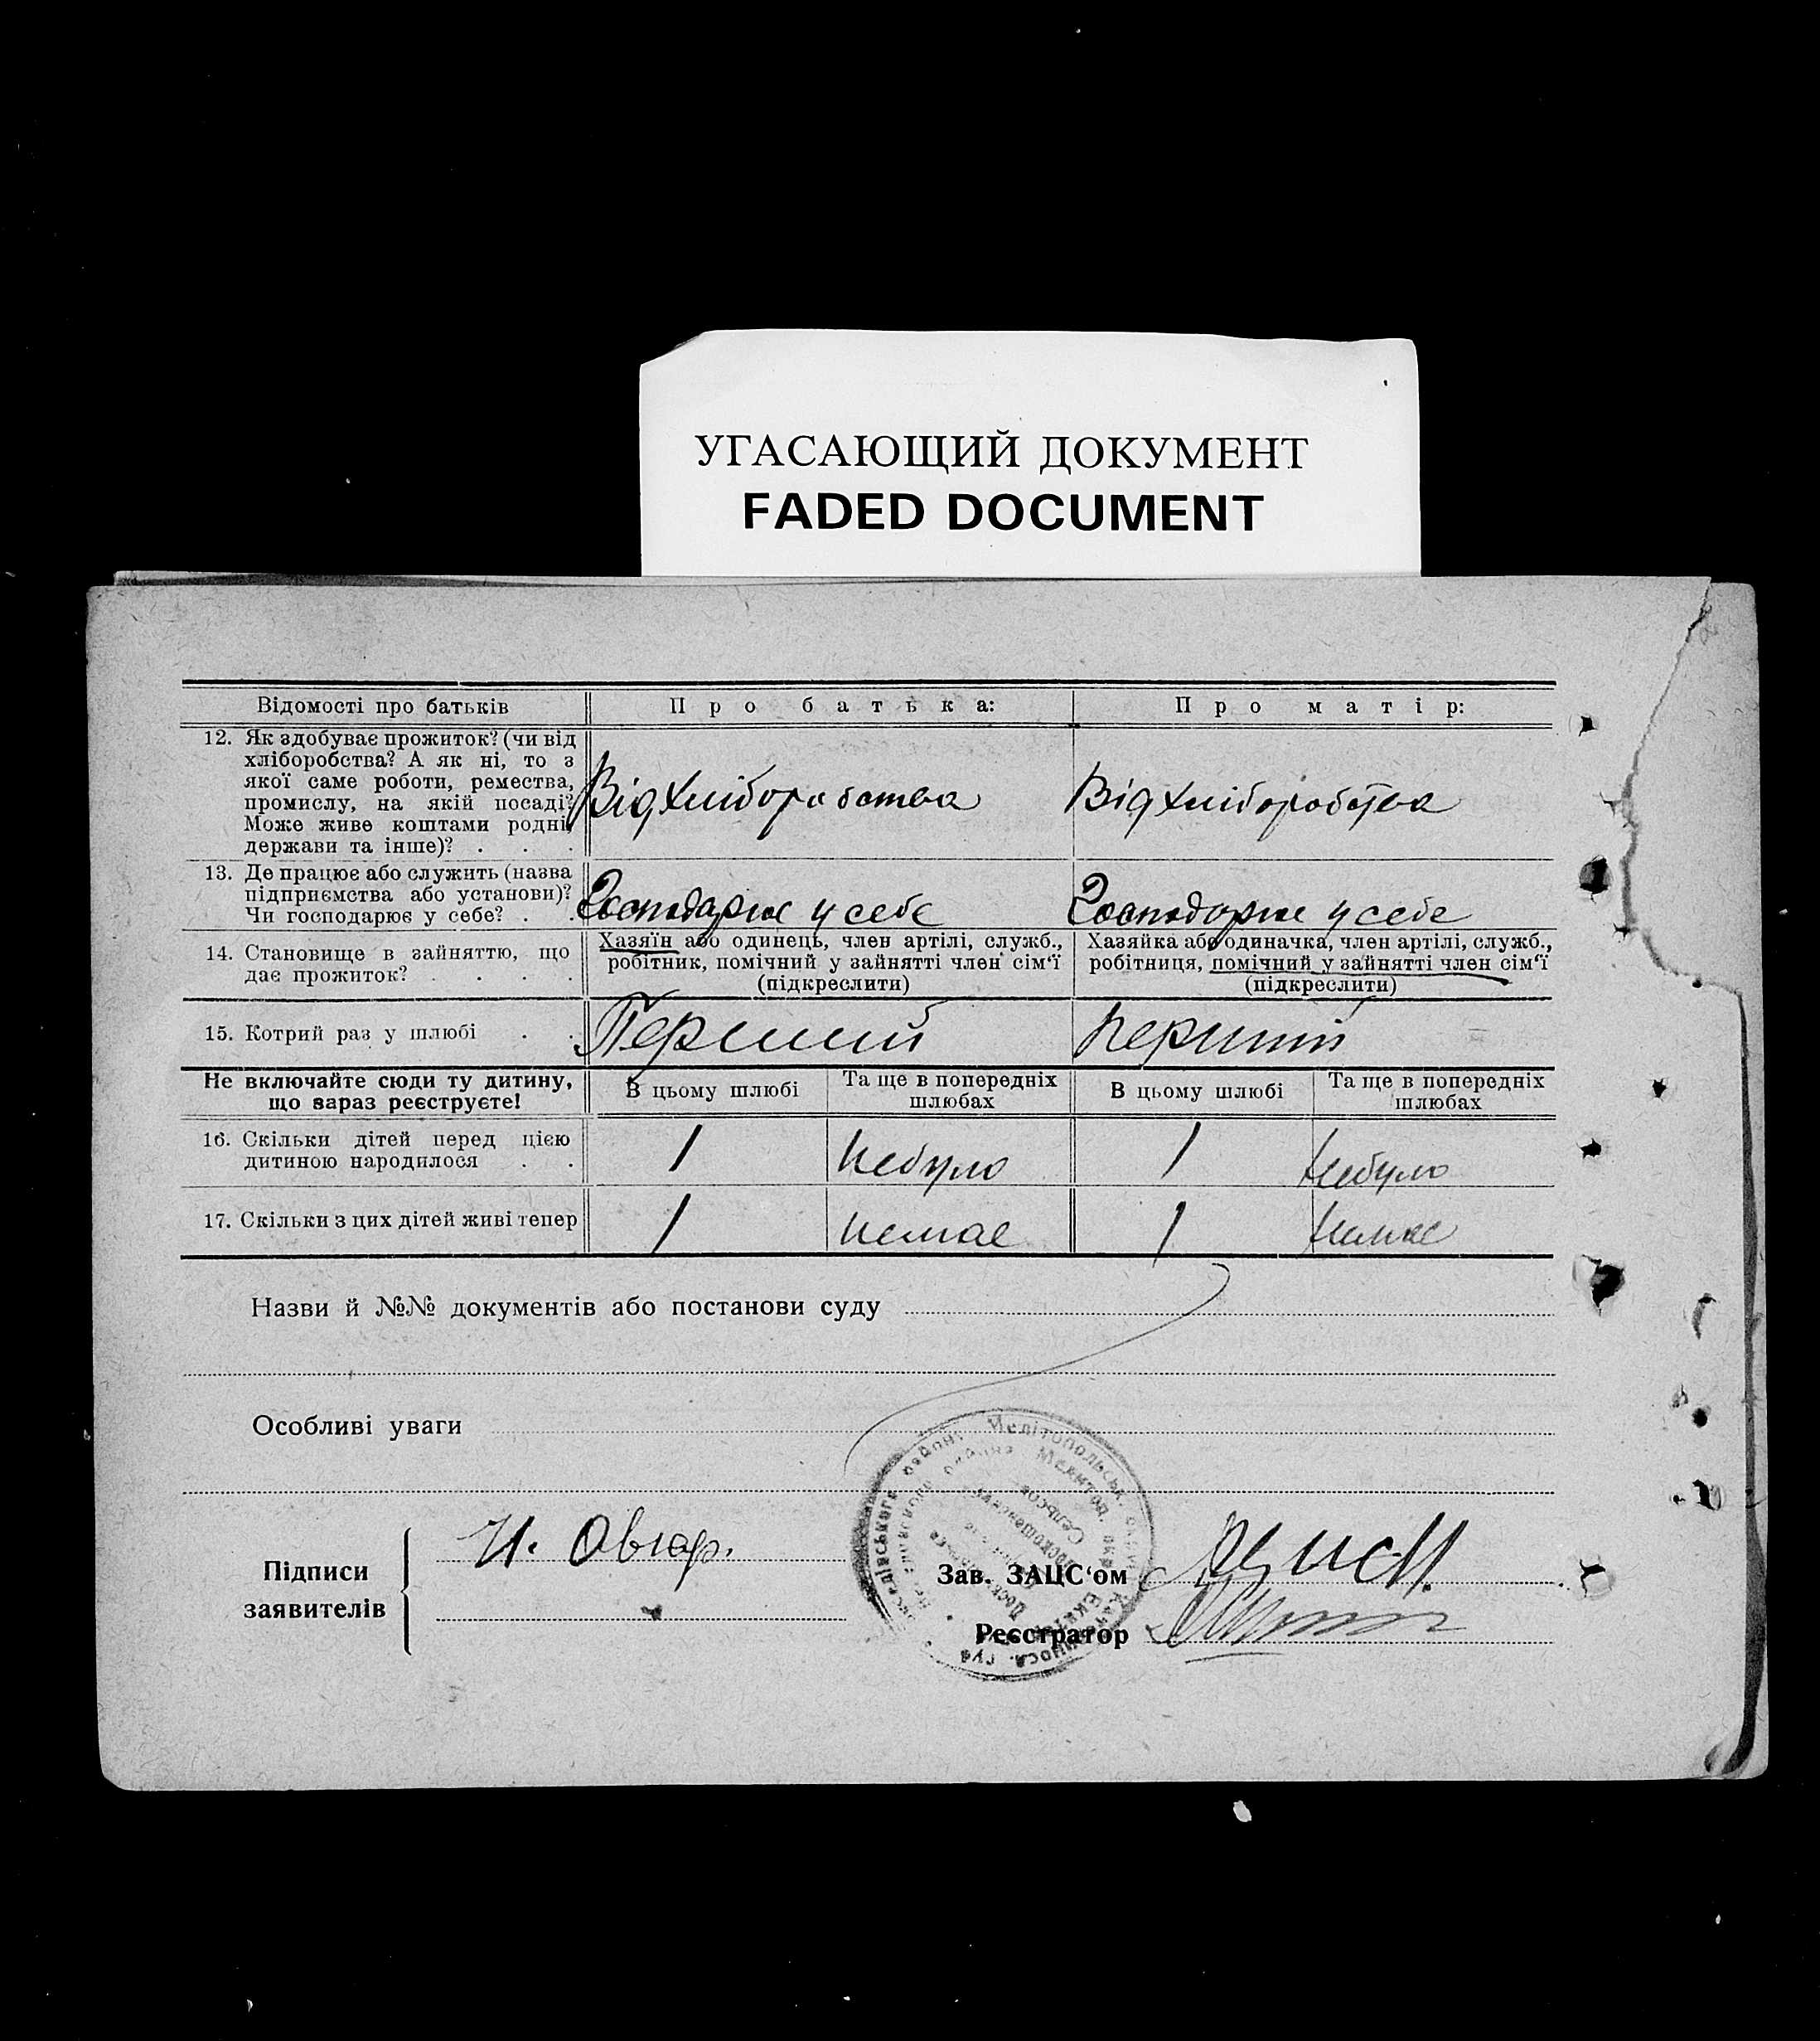 УГАСАЮЩИЙ ДОКУМЕНТ
FADED DOCUMENT
Відомості про батьків
Про батька:
Про матір:
12. Як здобуває прожиток? (чи від
хліборобства? А як ні, то з
якої саме роботи, ремества,
промислу, на якій посаді?
Може живе коштами родні,
держави та інше)? . . .
Від хліборобства
Від хліборобства
13. Де працює або служить (назва
підприємства або установи)?
Чи господарює у себе? . .
Господарює у себе
Господарює у себе
14. Становище в зайняттю, що
дає прожиток? . . . .
Хазяїн або одинець, член артілі, служб.,
робітник, помічний у зайнятті член сім‘ї
(підкреслити)
Хазяйка або одиначка, член артілі, служб.,
робітниця, помічний у зайнятті член сім‘ї
(підкреслити)
15. Котрий раз у шлюбі . .
Перший
перший
Не включайте сюди ту дитину,
що зараз реєструєте!
В цьому шлюбі
Та ще в попередніх
шлюбах
В цьому шлюбі
Та ще в попередніх
шлюбах
16. Скільки дітей перед цією
дитиною народилося . .
1
небуло
1
небуло
17. Скільки з цих дітей живі тепер
1
немає
1
немає
Назви й №№ документів або постанови суду
Особливі уваги
Підписи
заявителів
И. Овчар.
Зав. ЗАЦС‘ом
Реєстратор
району Мелітопольськ.